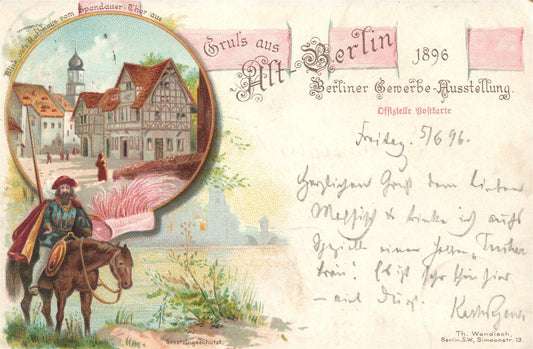 Blick aufs Rathhaus vom Spandauer-Thor aus
Gruſs aus
Alt-Berlin
1896
Berliner Gewerbe-Ausstellung.
Offizielle Postkarte
Freitag. 5/6 96.
Herzlichen Gruß dem lieben
trinke ich aufs
Spezielle einen
Es ist sehr schön hier
Gesetzl. geschützt.
Th. Wendisch,
Berlin, S.W., Simeonstr. 13.